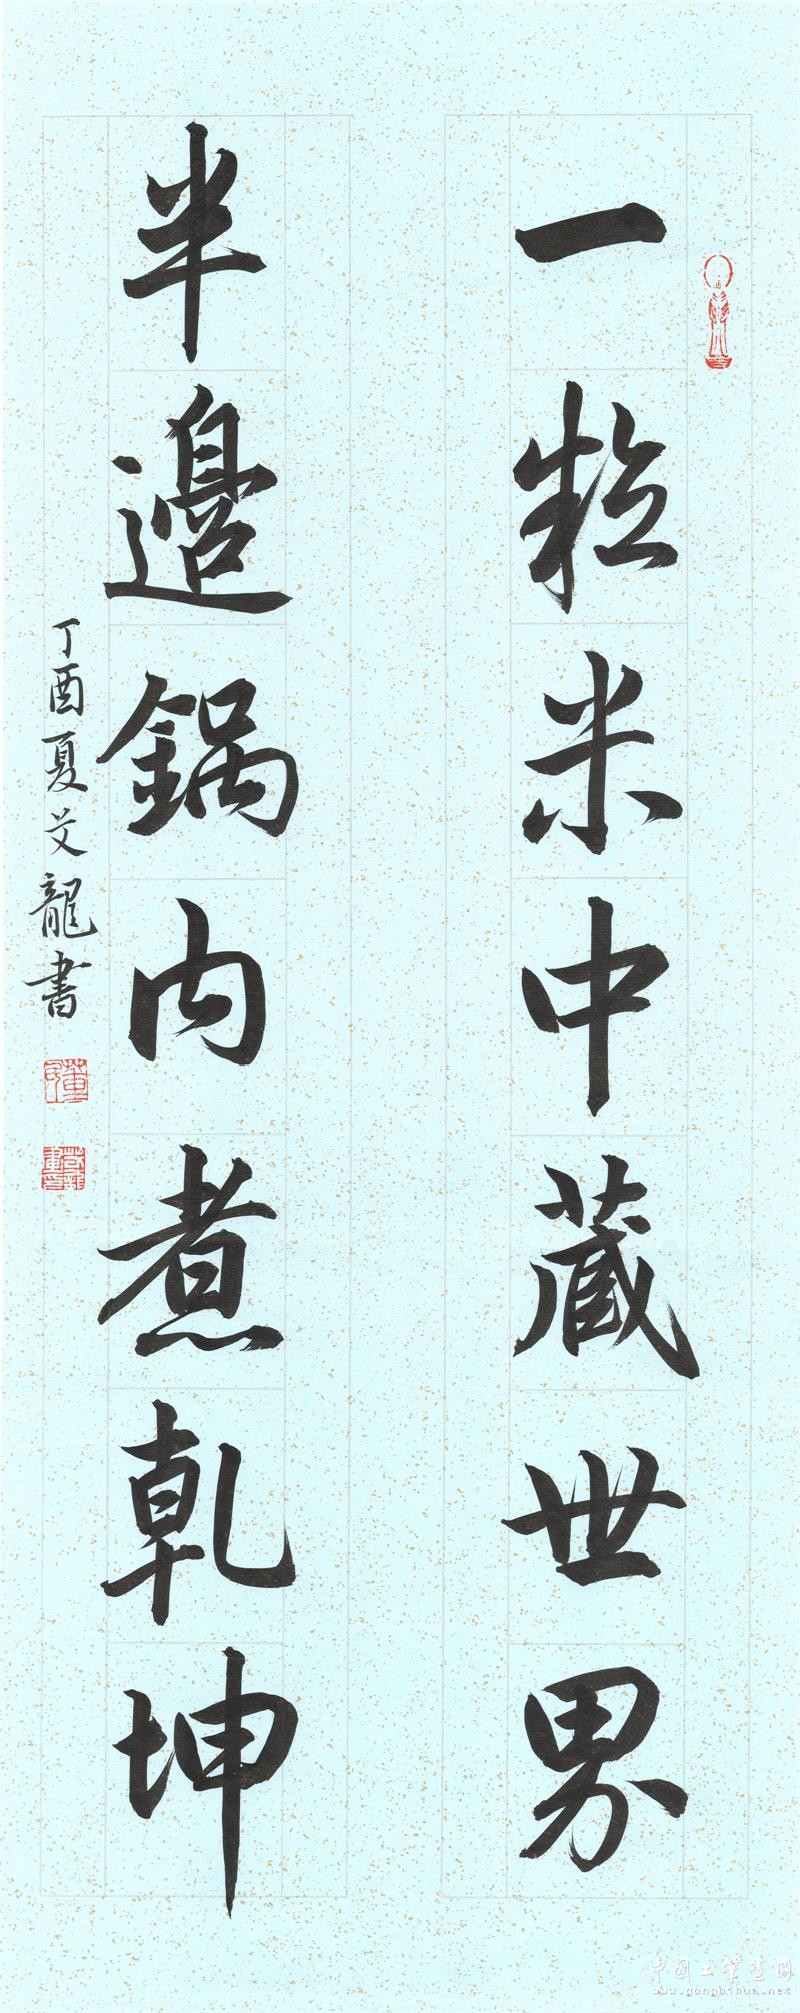 一粒米中蔵世界
半邉鍋内煮乾坤
丁酉夏艾龍書
中国工笔画网
www.gongbihua.net